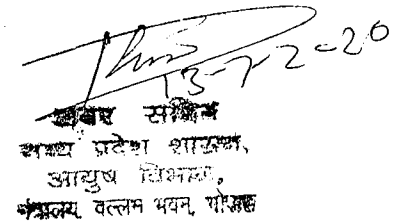 13-7-2-20
सचिव
मध्य प्रदेश शासन,
आयुष विभाग,
मंत्रालय वल्लभ भवन, भोपाल